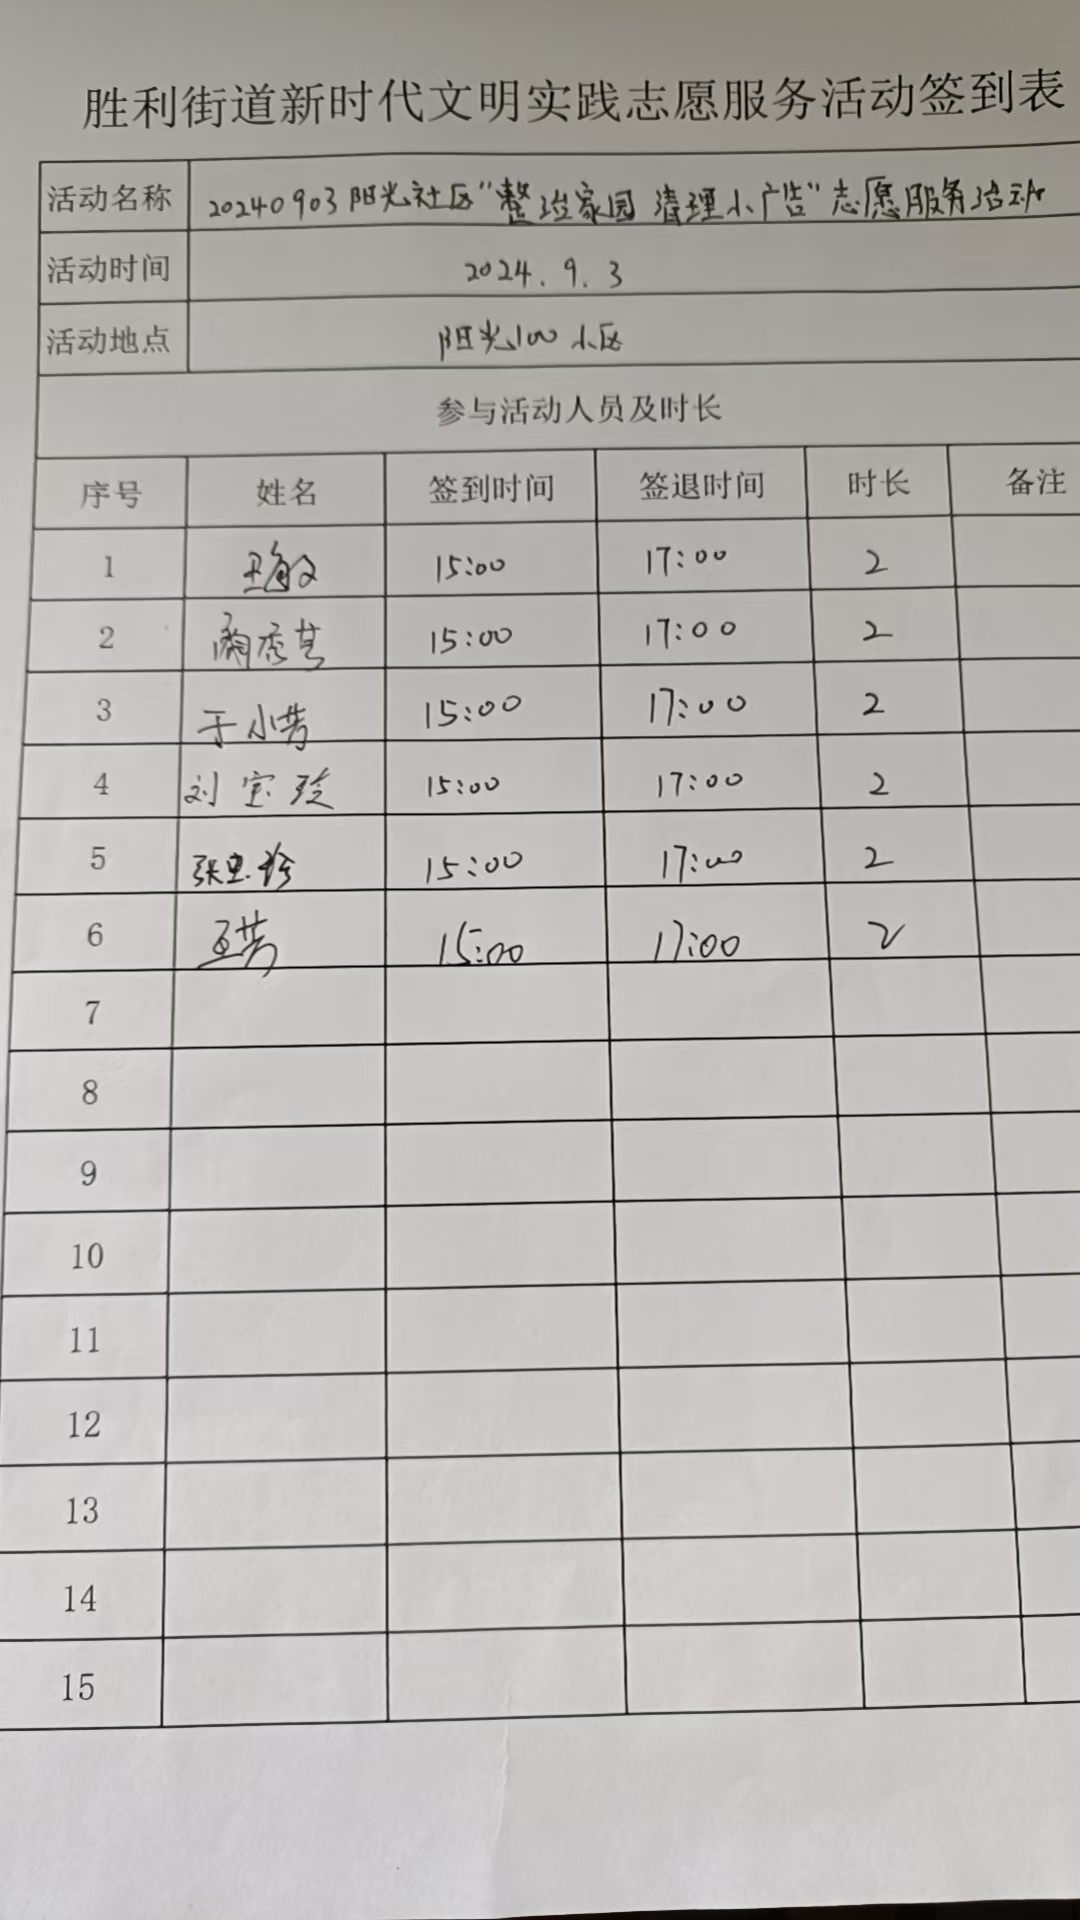 胜利街道新时代文明实践志愿服务活动签到表
活动名称 20240903阳光社区“整治家园 清理小广告”志愿服务活动
活动时间 2024.9.3
活动地点 阳光100小区
参与活动人员及时长
序号 姓名 签到时间 签退时间 时长 备注
1 王敏 15:00 17:00 2
2 15:00 17:00 2
3 于小芳 15:00 17:00 2
4 刘宝玲 15:00 17:00 2
5 张忠珍 15:00 17:00 2
6 王芳 15:00 17:00 2
7
8
9
10
11
12
13
14
15